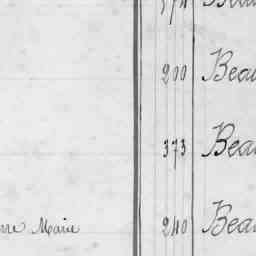 200 Beau
373 Beau
rre Marie 240 Beau